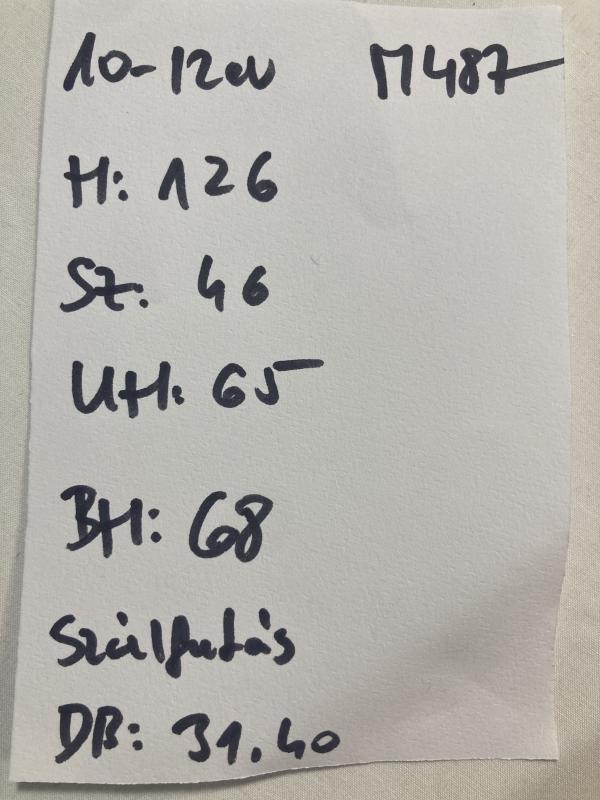 10-12év M487
H: 126
Sz: 46
UH: 65
BH: 68
Szálfutás
DB: 31.40